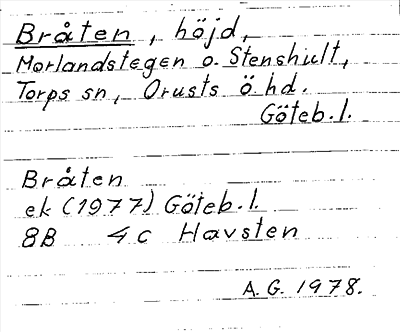 Bråten, höjd,
Morlandstegen o. Stenshult,
Torps sn, Orusts ö. hd.
Göteb. l.
Bråten
ek (1977) Göteb. l.
8B 4c Havsten
A. G. 1978.